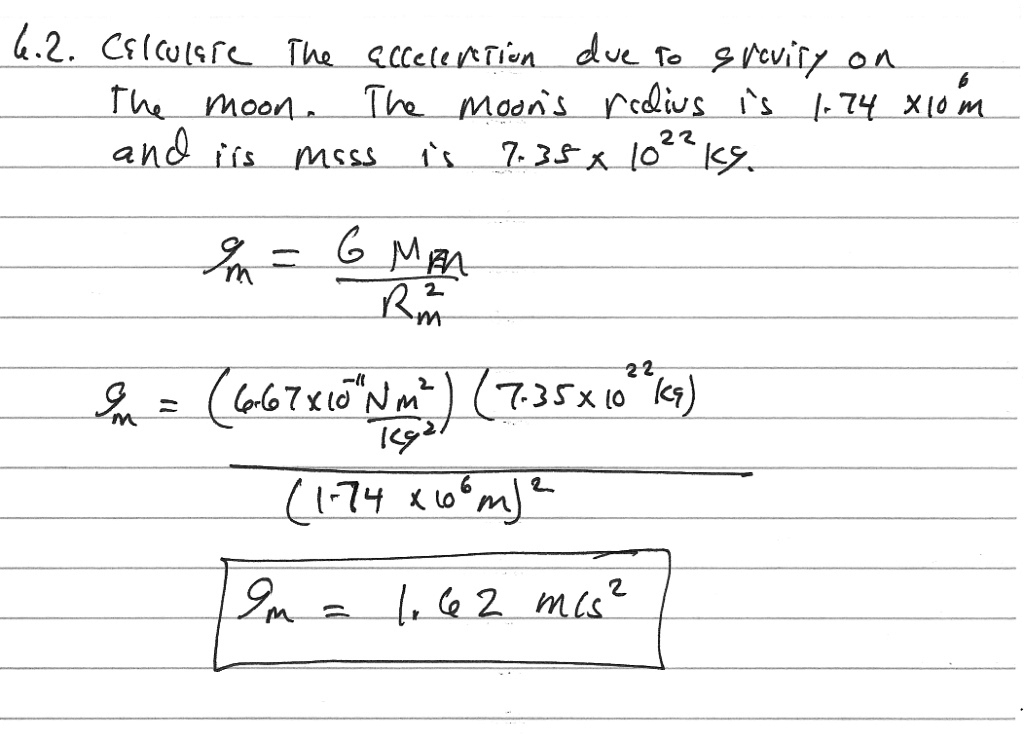 6.2. Calculate The acceleration due to gravity on
The moon. The moon's radius is 1.74 x10⁶ m
and its mass is 7.35 x 10²² kg.
gₘ = G Mₘ
Rₘ²
gₘ = (6.67x10⁻¹¹ N m²) (7.35 x 10²² kg)
kg²
(1.74 x 10⁶ m)²
gₘ = 1.62 m/s²